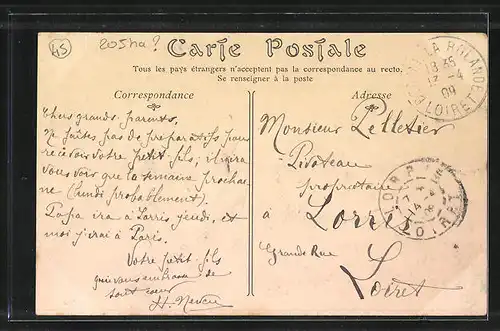 45
205ha?
Carte Postale
Tous les pays étrangers n'acceptent pas la correspondance au recto.
Se renseigner à la poste
Correspondance
Adresse
LA ROLANDE
18 35
12 -4
09
LOIRET
Chers grands-parents,
Ne faites pas de préparatifs pour
recevoir votre petit fils, il ira
vous voir que la semaine prochai
ne (lundi probablement).
Papa ira à Lorris jeudi, et
moi j'irai à Paris.
Votre petit fils
qui vous embrasse de
tout cœur
H. Neveu
Monsieur Pelletier
Pivoteau
propriétaire
à Lorris
Grande Rue
Loiret
LORRIS
LOIRET